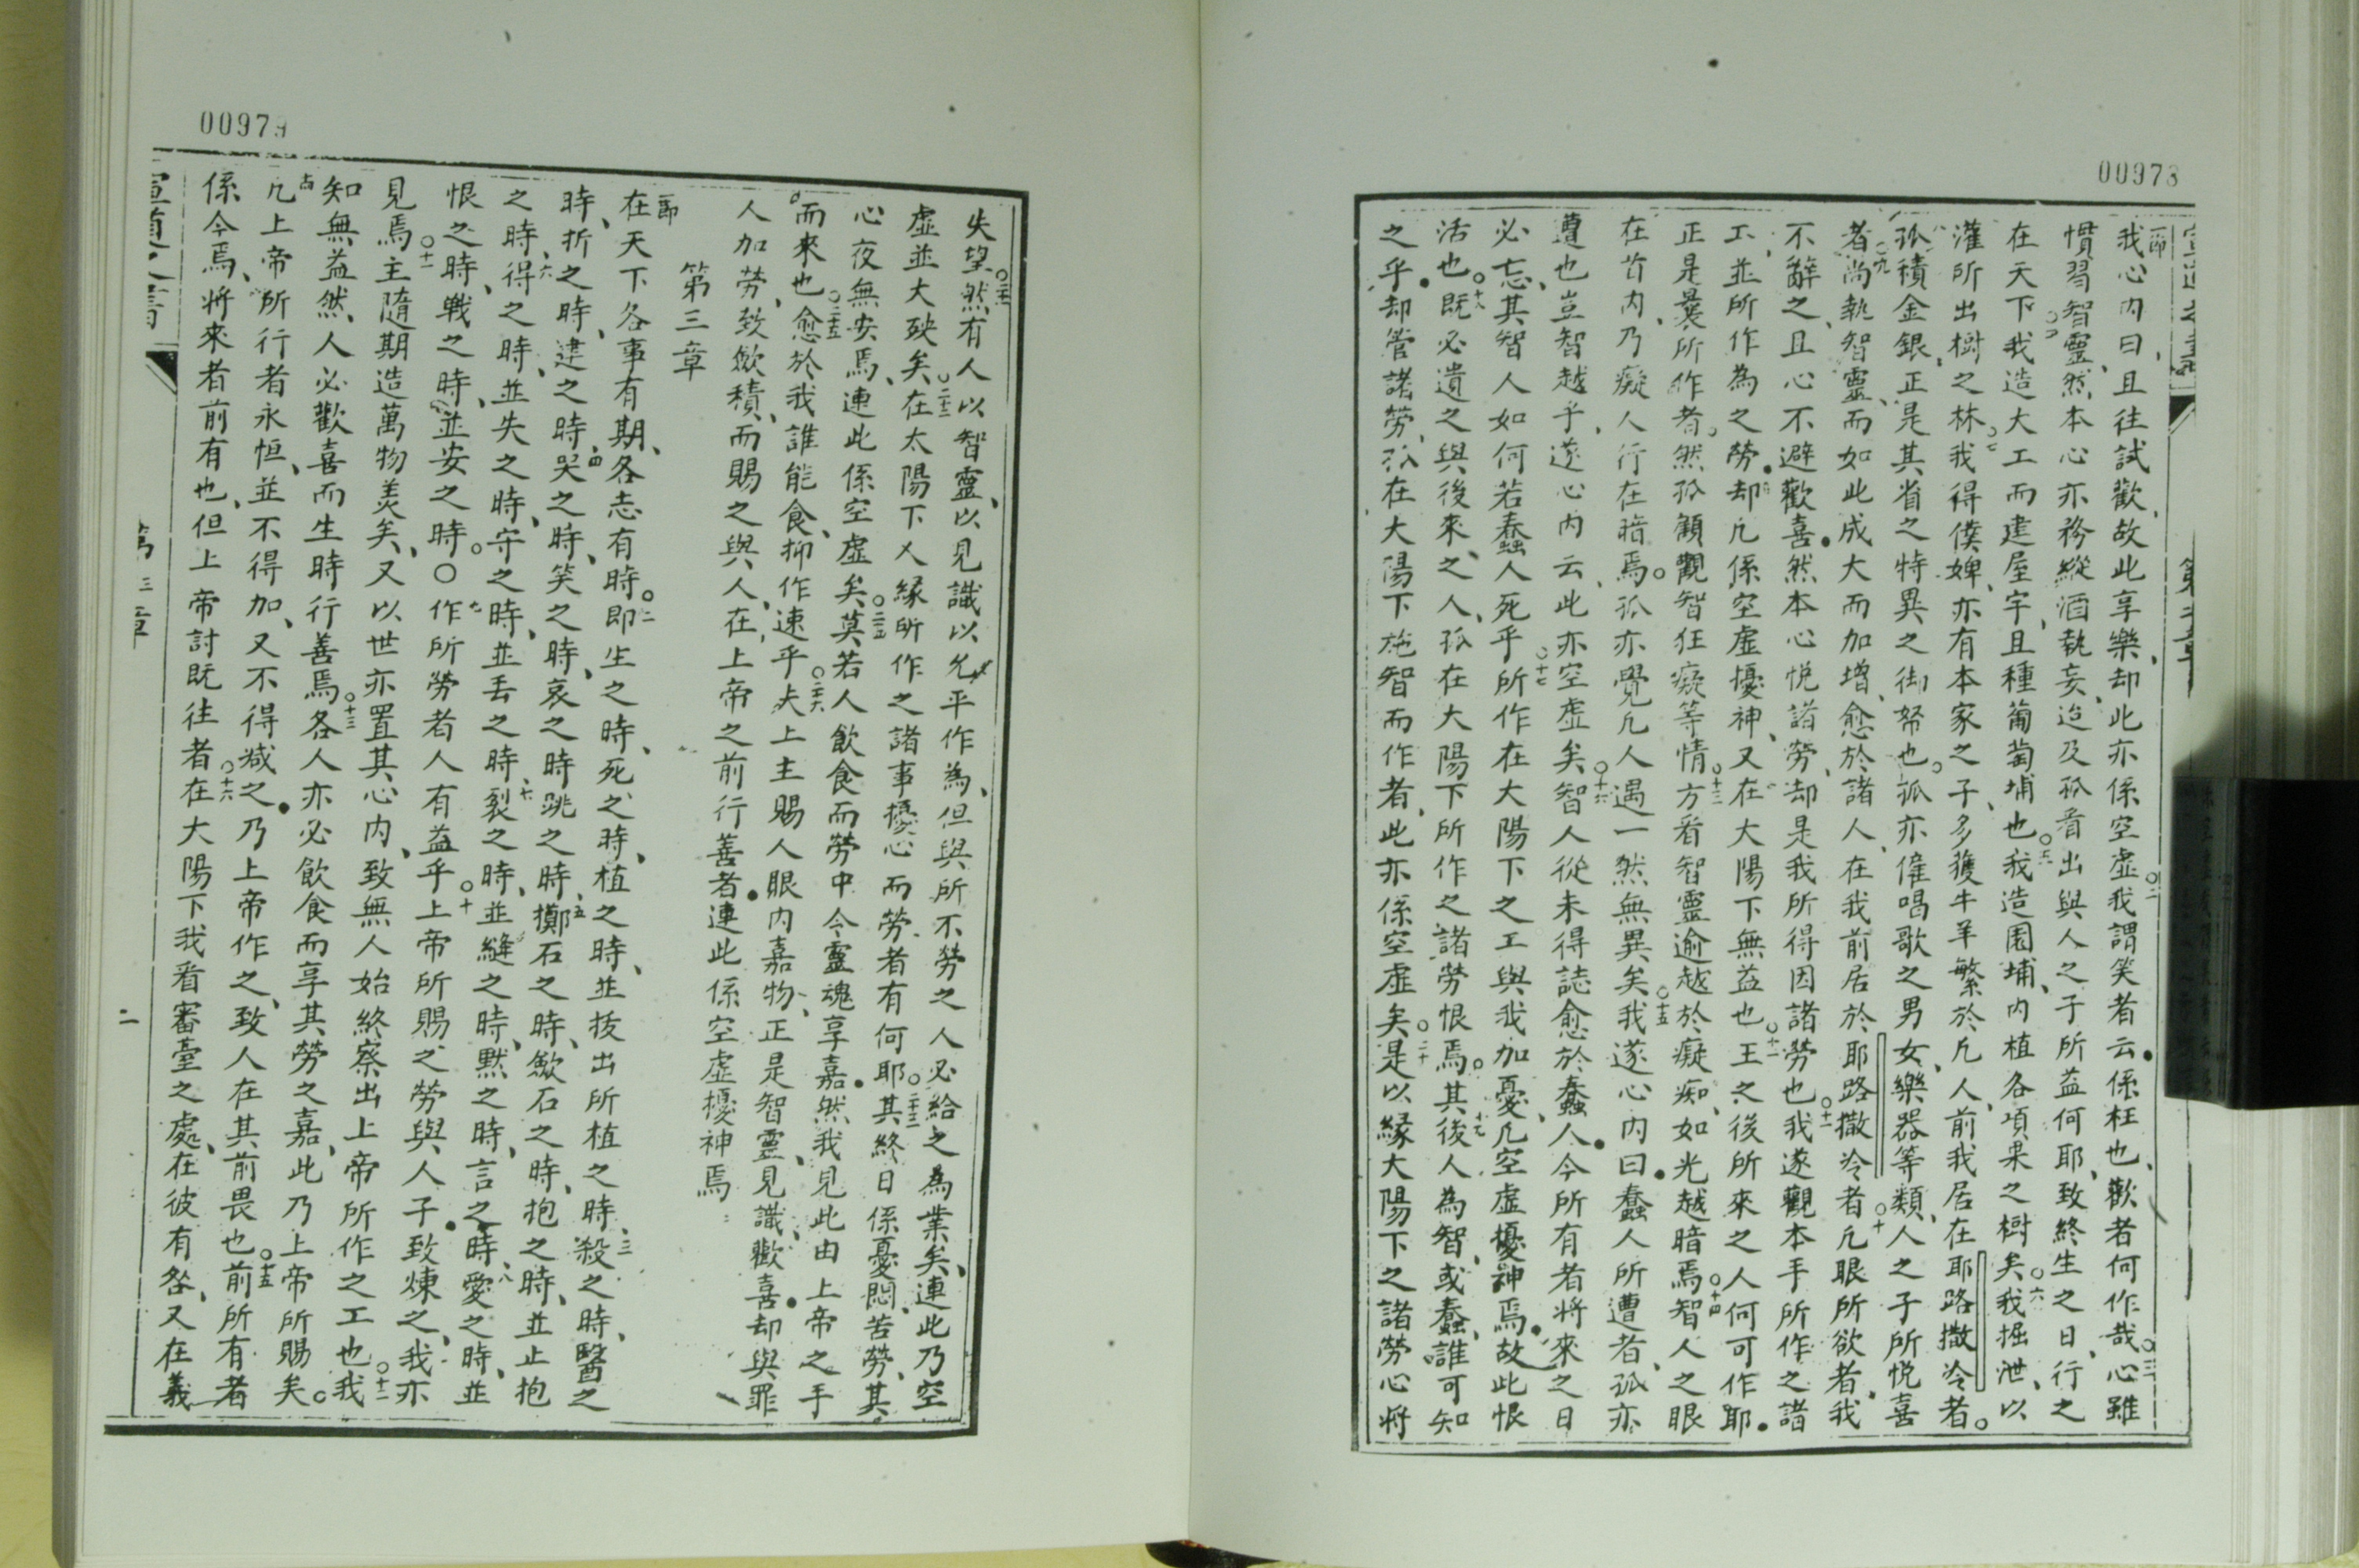 00978
宣道之書 第二章
一節 我心内曰、且往試歡、故此享樂、却此亦係空虛○二我謂笑者云係枉也、歡者何作哉○三心雖
慣習智靈、然本心亦務縱酒執妄、迨及孤看出與人之子所益何耶、致終生之日、行之
在天下○四我造大工而建屋宇、且種葡萄埔也○五我造園埔、内植各項果之樹矣○六我掘泄、以
灌所出樹之林○七我得僕婢、亦有本家之子、多獲牛羊繁於凡人、前我居在耶路撒冷者。
八孤積金銀、正是其省之特異之御帑也。孤亦僱唱歌之男女、樂器等類、人之子所悅喜
者○九尚執智靈、而如此成大而加增、愈於諸人、在我前居於耶路撒冷者○十凡眼所欲者、我
不辭之、且心不避歡喜然本心悅諸勞、却是我所得因諸勞也○十一我遂觀本手所作之諸
工、並所作為之勞却凡係空虛擾神、又在大陽下無益也○十二王之後所來之人何可作耶
正是曩所作者。然孤顧觀智狂癡等情○十三方看智靈逾越於癡痴、如光越暗焉○十四智人之眼
在首内、乃癡人行在暗焉。孤亦覺凡人遇一然無異矣○十五我遂心内曰蠢人所遭者、孤亦
遭也豈智越乎、遂心内云、此亦空虛矣○十六智人從未得誌愈於蠢人今所有者將來之日
必忘、其智人如何若蠢人死乎○十七所作在大陽下之工與我加憂、凡空虛擾神焉故此恨
活也○十八既必遺之與後來之人、孤在大陽下所作之諸勞恨焉。十九其後人為智、或蠢、誰可知
之乎却管諸勞、孤在大陽下施智而作者、此亦係空虛矣○二十是以緣大陽下之諸勞心將
00979
失望○二十一然有人以智靈、以見識以允平作為、但與所不勞之人必給之為業矣、連此乃空
虛並大殃矣○二十二在太陽下人緣所作之諸事擾心而勞者有何耶○二十三其終日係憂悶、苦勞、其
心夜無安焉、連此係空虛矣○二十四莫若人飲食而勞中令靈魂享嘉然我見此由上帝之手
而來也○二十五愈於我誰能食、抑作速乎○二十六夫上主賜人眼内嘉物、正是智靈、見識、歡喜却與罪
人加勞、致斂積、而賜之與人、在上帝之前行善者連此係空虛擾神焉
第三章
一節 在天下各事有期、各志有時。二即生之時、死之時、植之時、並拔出所植之時、三殺之時、醫之
時、折之時、建之時、四哭之時、笑之時、哀之時跳之時、五擲石之時、斂石之時、抱之時、並止抱
之時、六得之時、並失之時、守之時、並丟之時、七裂之時、並縫之時、默之時、言之時、八愛之時、並
恨之時、戰之時、並安之時。○九作所勞者人有益乎○十上帝所賜之勞與人子致煉之、我亦
見焉○十一主隨期造萬物羙矣、又以世亦置其心内、致無人始終察出上帝所作之工也○十二我
知無益然、人必歡喜而生時行善焉○十三各人亦必飲食而享其勞之嘉、此乃上帝所賜矣。
十四凡上帝所行者永恒、並不得加、又不得減之乃上帝作之、致人在其前畏也○十五前所有者
係今焉、將來者前有也、但上帝討既往者○十六在大陽下我看審臺之處、在彼有咎、又在義
宣道之書 第三章 二